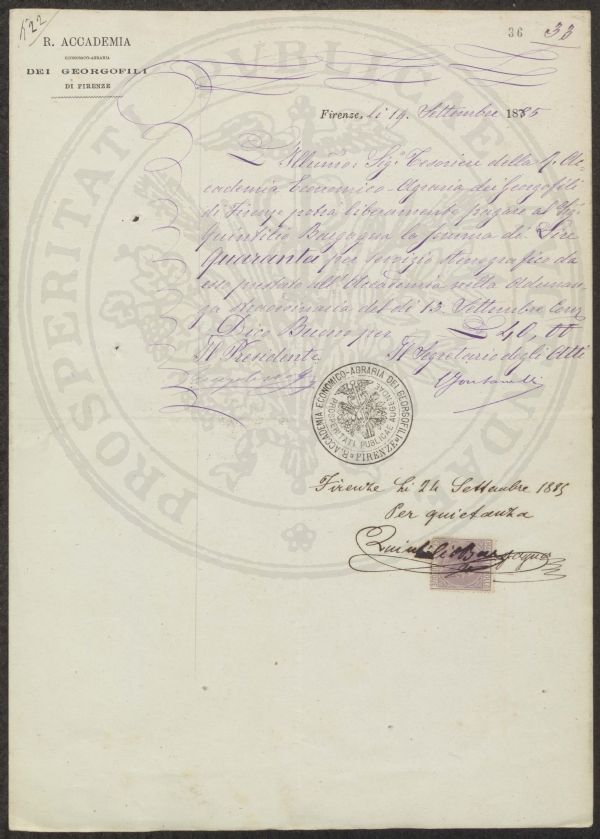 422
36 33
R. ACCADEMIA
ECONOMICO-AGRARIA
DEI GEORGOFILI
DI FIRENZE
Firenze, li 19 Settembre 1885
L'Illumo: Sigr. Tesoriere della R. Ac-
cademia Economico-Agraria dei Georgofili
di Firenze potrà liberamente pagare al Sig.
Quintilio Bargagna la somma di Lire
Quaranta per servizio stenografico da
esso prestato all'Accademia nella Adunan-
za straordinaria del dì 13. Settembre Corr.
Dico Buono per L 40, tt
Il Presidente Il Segretario degli Atti
R. ACCADEMIA ECONOMICO-AGRARIA DEI GEORGOFILI
FIRENZE
PROSPERITATI PUBLICAE AUGENDAE
Firenze li 24 Settembre 1885
Per quietanza
Quintilio Bargagna
PROSPERITATI PVBLICAE